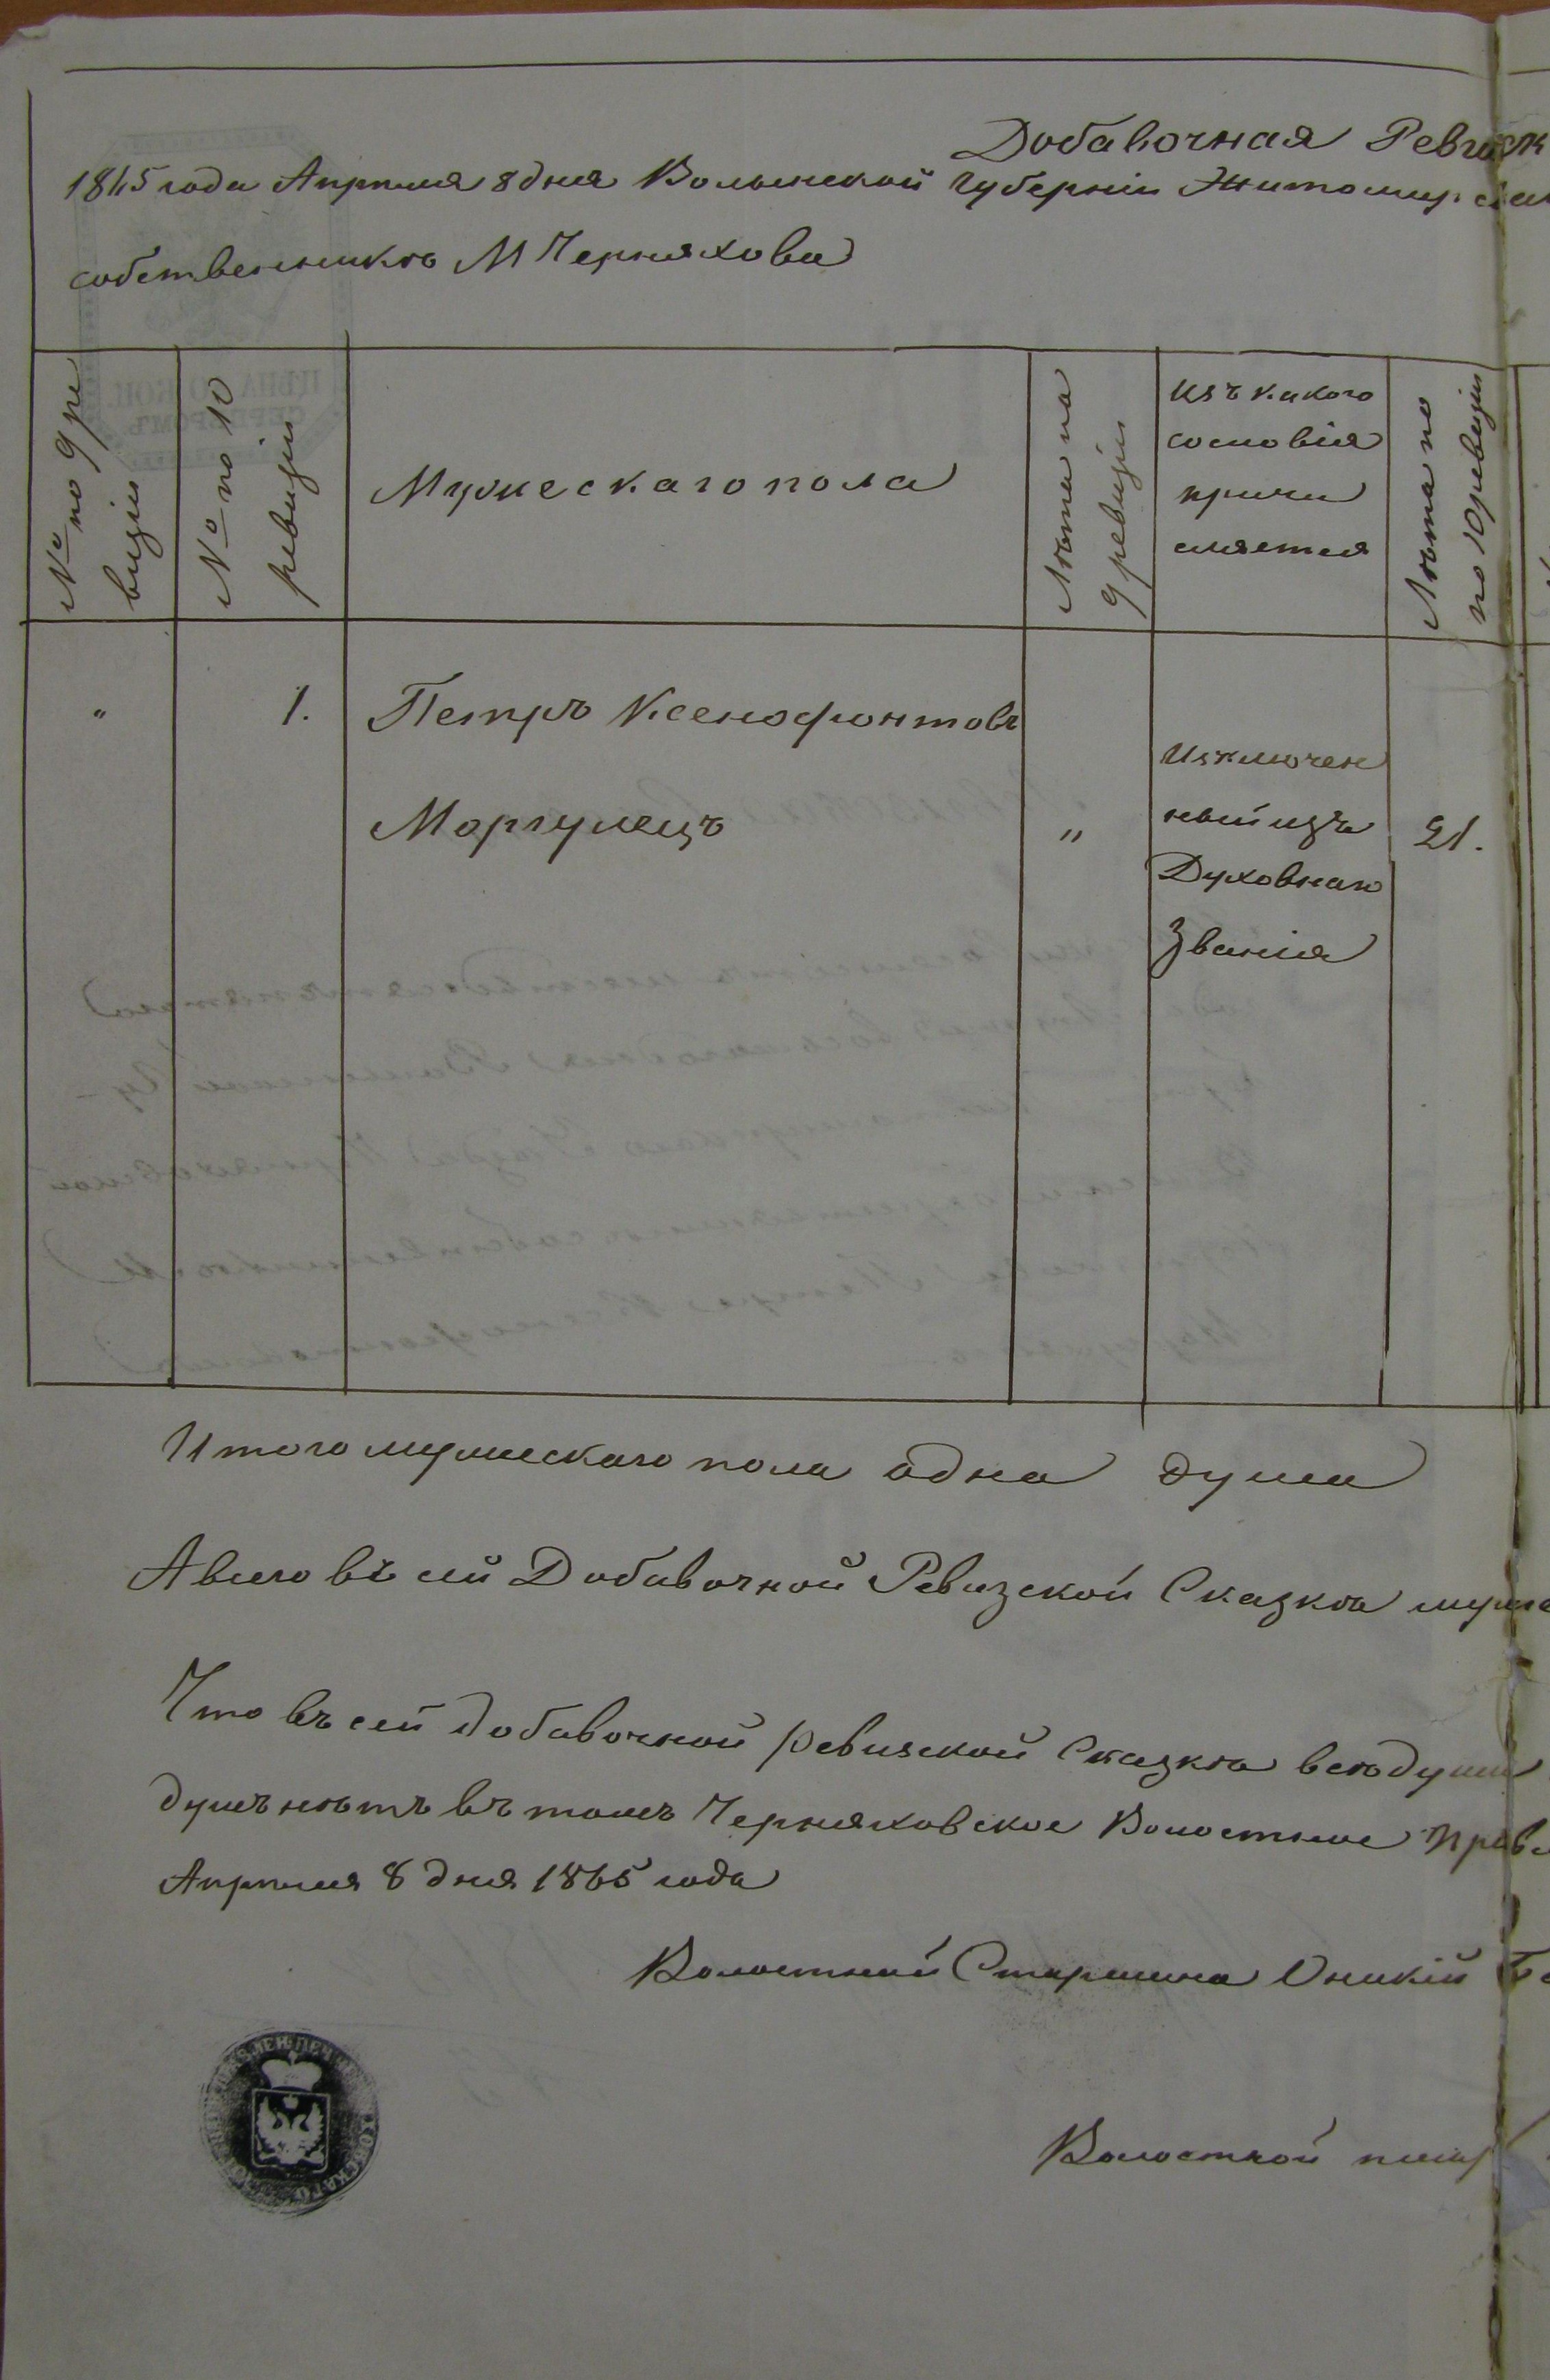 Добавочная Ревизск
1865 года Апрѣля 8 дня Волынской Губерніи Житомирска
собственникъ М Черняхова
№ по 9 ре
визіи
№ по 10
ревизіи
Мужескаго пола
Лѣта по
9 ревизіи
Изъ какого
сословія
причи
сляется
Лѣта по
по 10 ревизіи
" 1. Петръ Ксенофонтовъ
Моргулецъ " 21.
Изключен
ный изъ
Духовнаго
Званія
Итого мужескаго пола одна душа
А всего въ сей Добавочной Ревизской Сказкѣ муже
Что въ сей добавочной ревизской Сказкѣ всѣ души
душъ нѣтъ въ томъ Черняховское Волостное Правл
Апрѣля 8 дня 1865 года
Волостный Старшина Оникій
Волостной писар